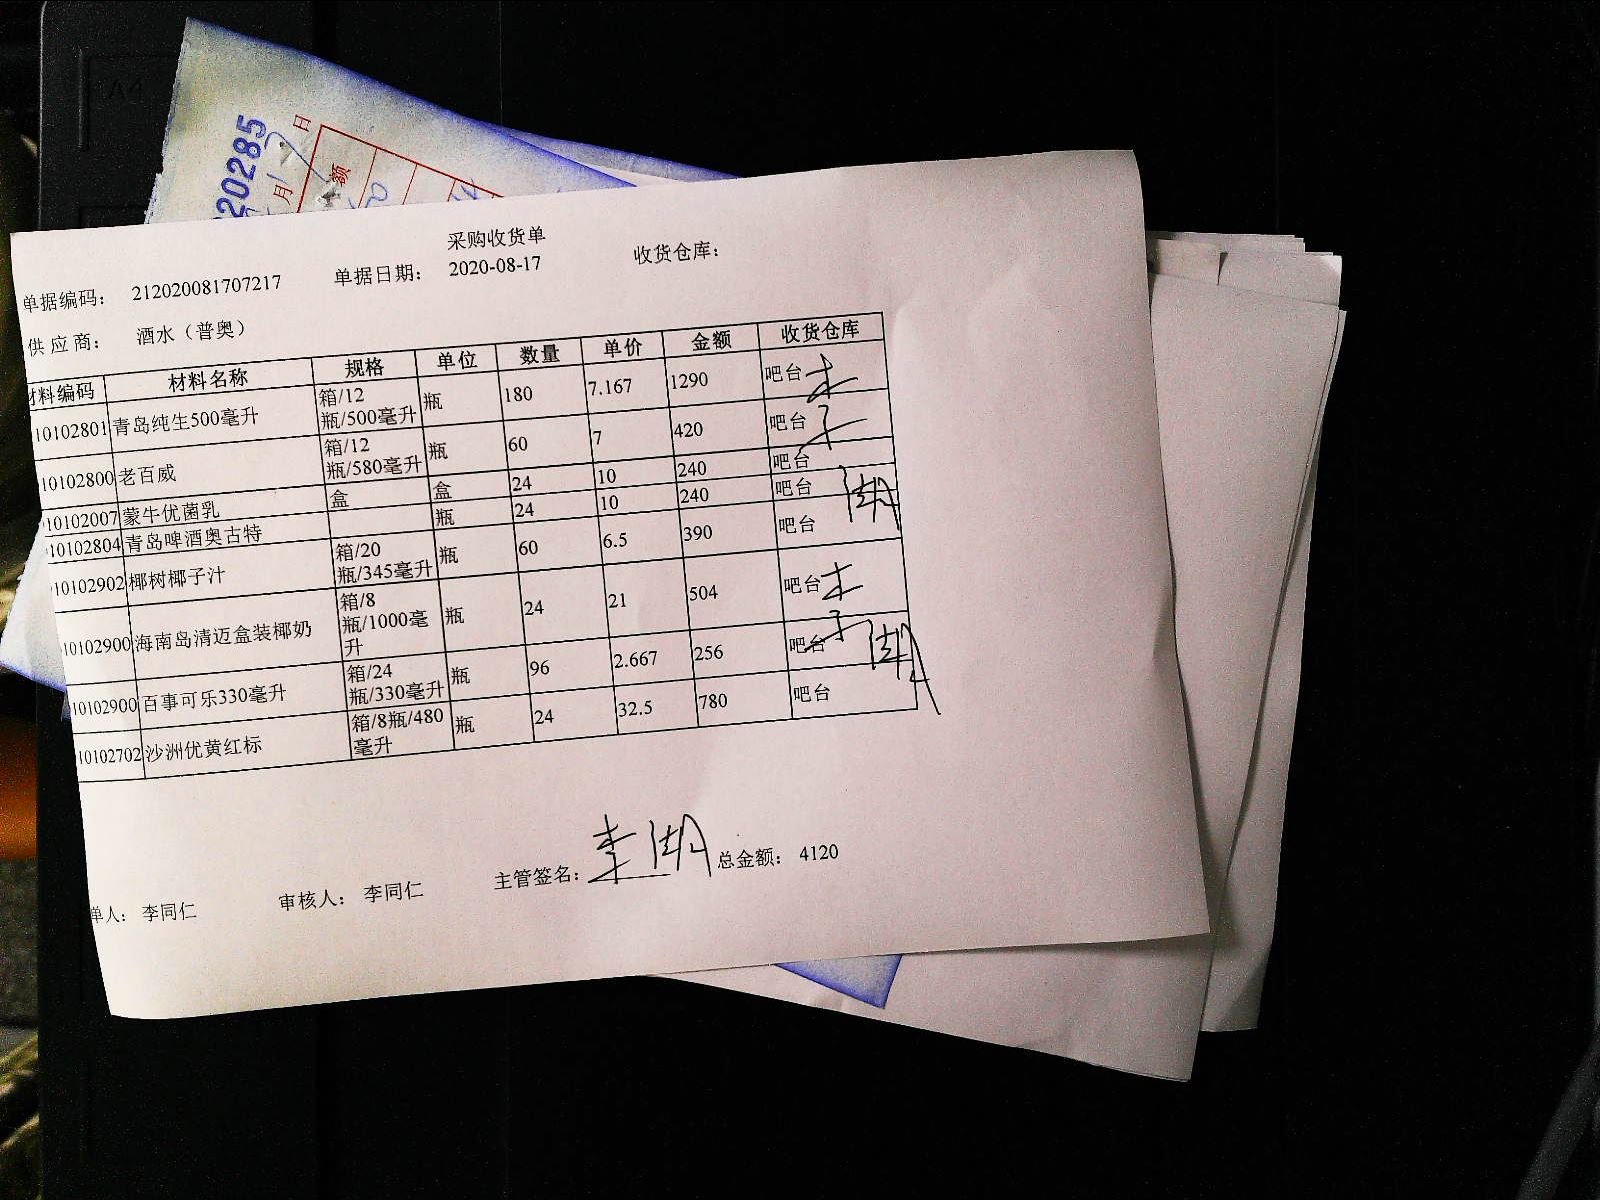 A4
20285
日
月
额
采购收货单
单据编码： 212020081707217 单据日期： 2020-08-17 收货仓库：
供 应 商： 酒水（普奥）
材料编码 材料名称 规格 单位 数量 单价 金额 收货仓库
10102801 青岛纯生500毫升 箱/12瓶/500毫升 瓶 180 7.167 1290 吧台
10102800 老百威 箱/12瓶/580毫升 瓶 60 7 420 吧台
10102007 蒙牛优菌乳 盒 盒 24 10 240 吧台
10102804 青岛啤酒奥古特 瓶 24 10 240 吧台
10102902 椰树椰子汁 箱/20瓶/345毫升 瓶 60 6.5 390 吧台
10102900 海南岛清迈盒装椰奶 箱/8瓶/1000毫升 瓶 24 21 504 吧台
10102900 百事可乐330毫升 箱/24瓶/330毫升 瓶 96 2.667 256 吧台
10102702 沙洲优黄红标 箱/8瓶/480毫升 瓶 24 32.5 780 吧台
李湖
李湖
单人： 李同仁 审核人： 李同仁 主管签名： 李湖 总金额： 4120